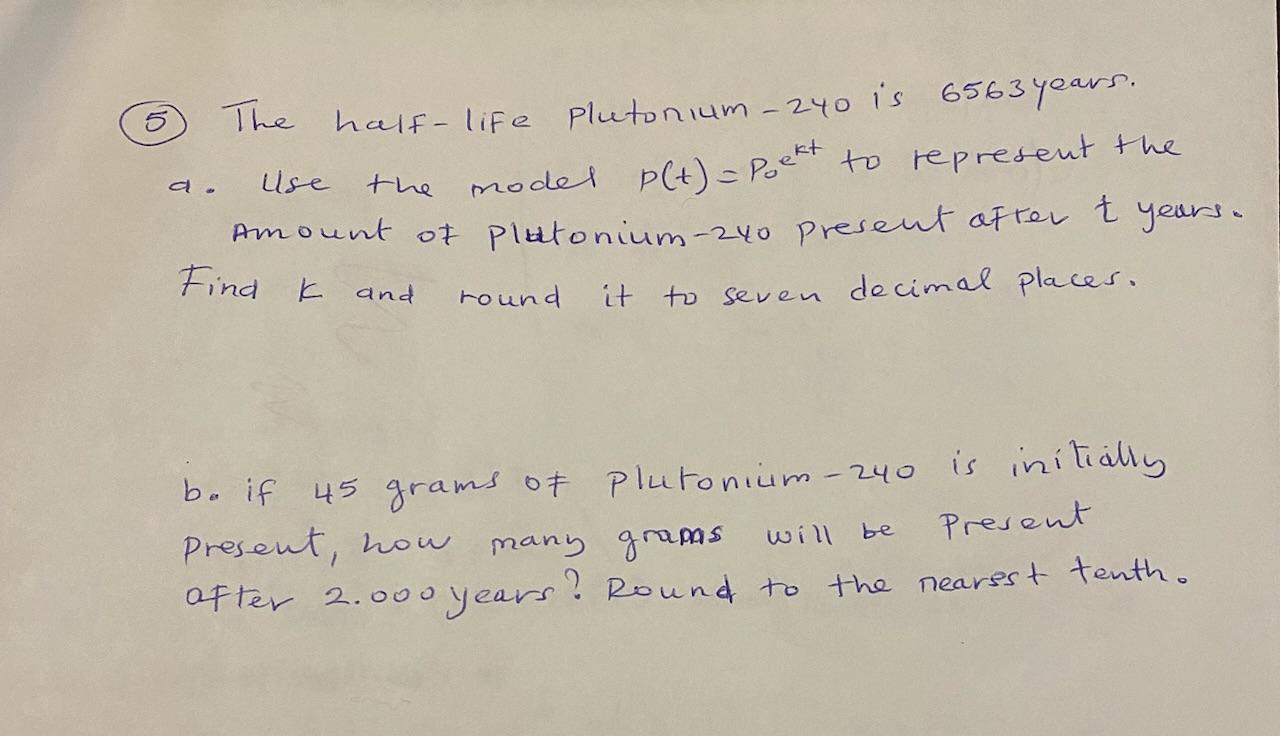 5 The half-life Plutonium-240 is 6563 years.
a. Use the model P(t) = P₀e^kt to represent the
Amount of Plutonium-240 present after t years.
Find k and round it to seven decimal places.
b. if 45 grams of Plutonium-240 is initially
Present, how many grams will be Present
after 2.000 years? Round to the nearest tenth.